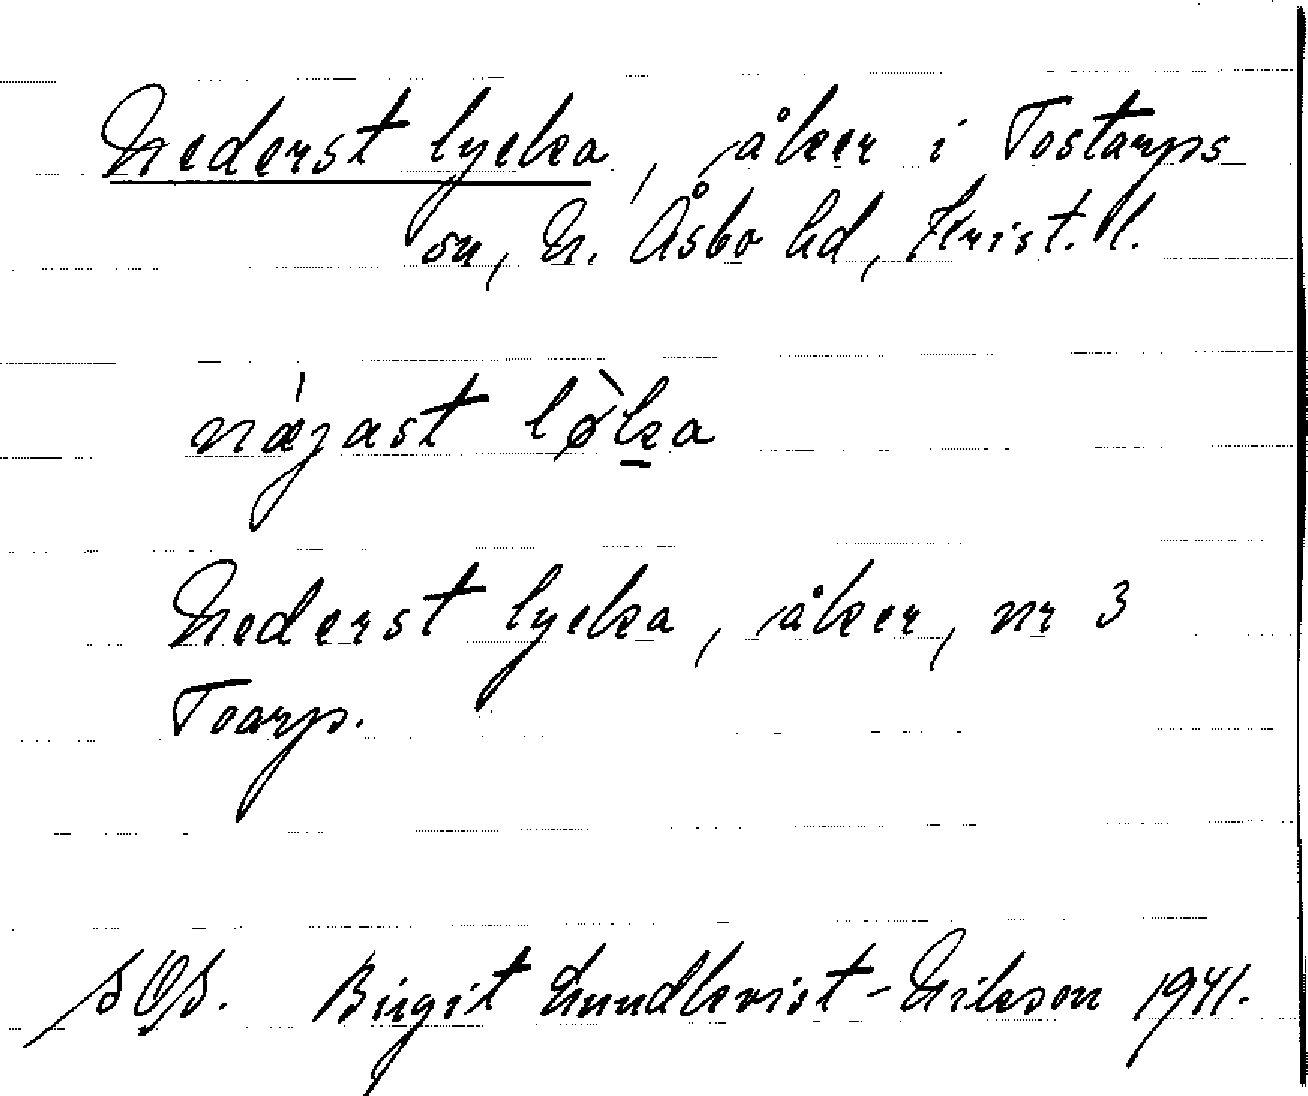 Nederst lycka, åker i Tostarps
sn, N. Åsbo hd, Krist. l.
næ̍jast lø̀ḵa
Nederst lycka, åker, nr 3
Toarp.
SOS. Birgit Lundkvist-Nilsson 1941.